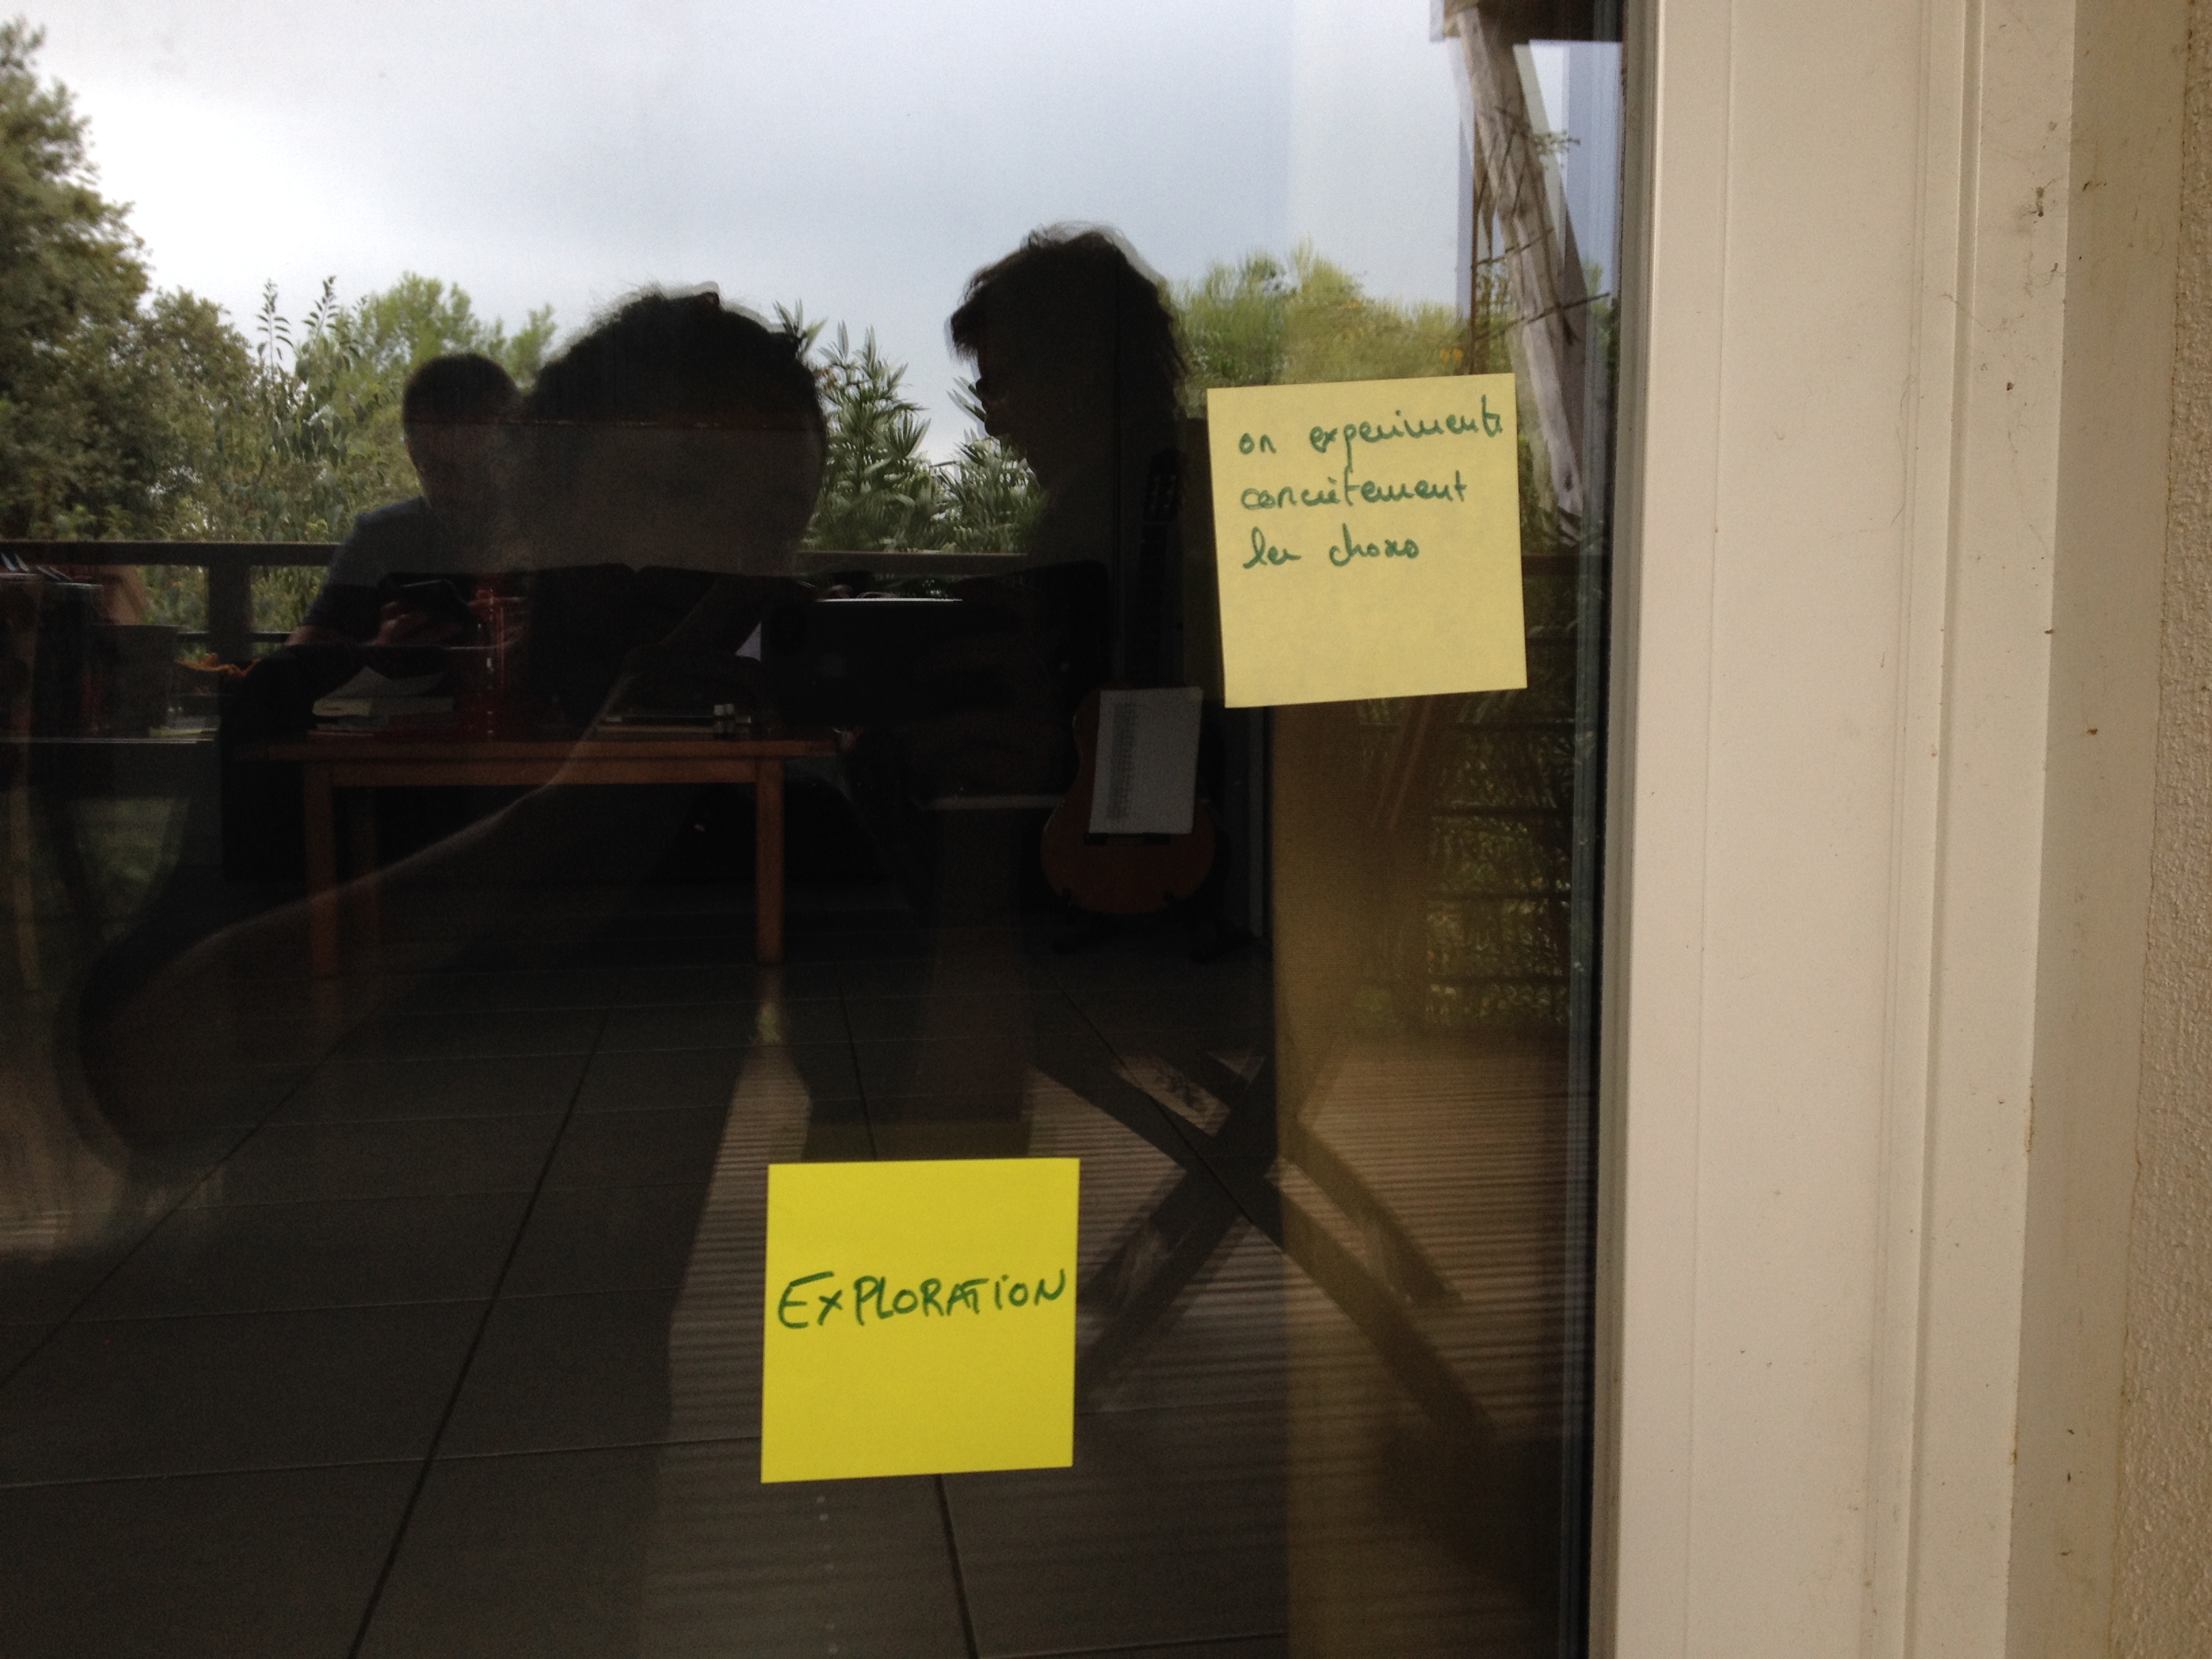 on expérimente
concrètement
les choses
EXPLORATION